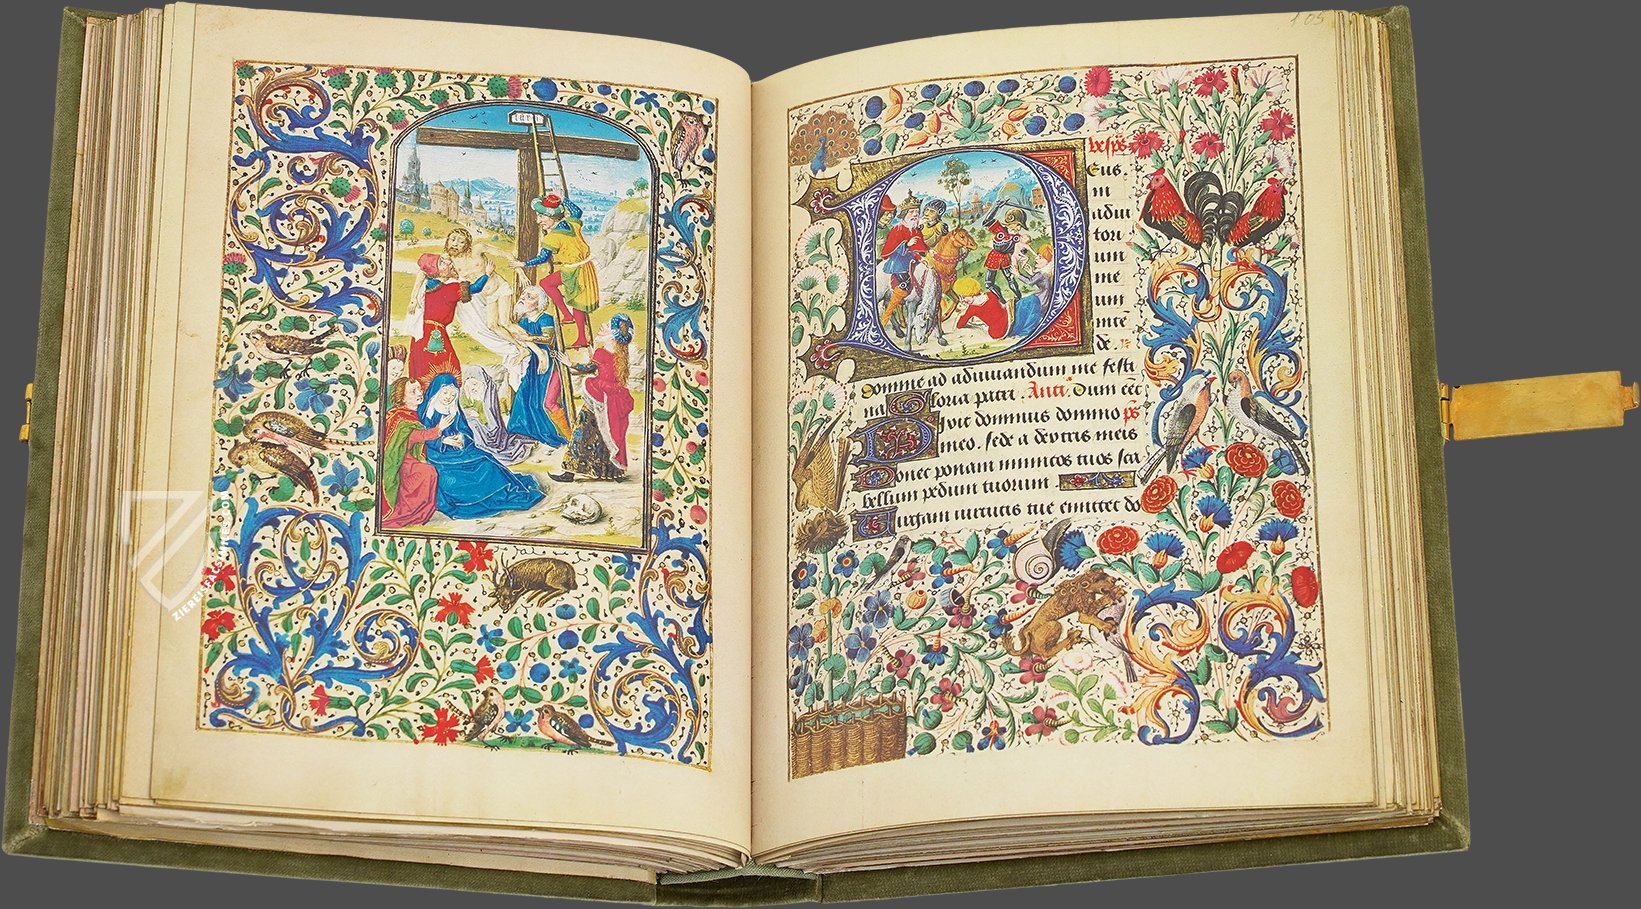 INRI
105
ZIEREIS FAKSIMILES
vesp̄s
Deus.
in
adiu
tori
um
me
um
inte
de.
Domine ad adiuvandum me festi
na Gloria patri. Anti. Dum eēt
Dixit dominus domino ps
meo. sede a dextris meis
Donec ponam inimicos tuos sca
bellum pedum tuorum
Virgam virtutis tue emittet do